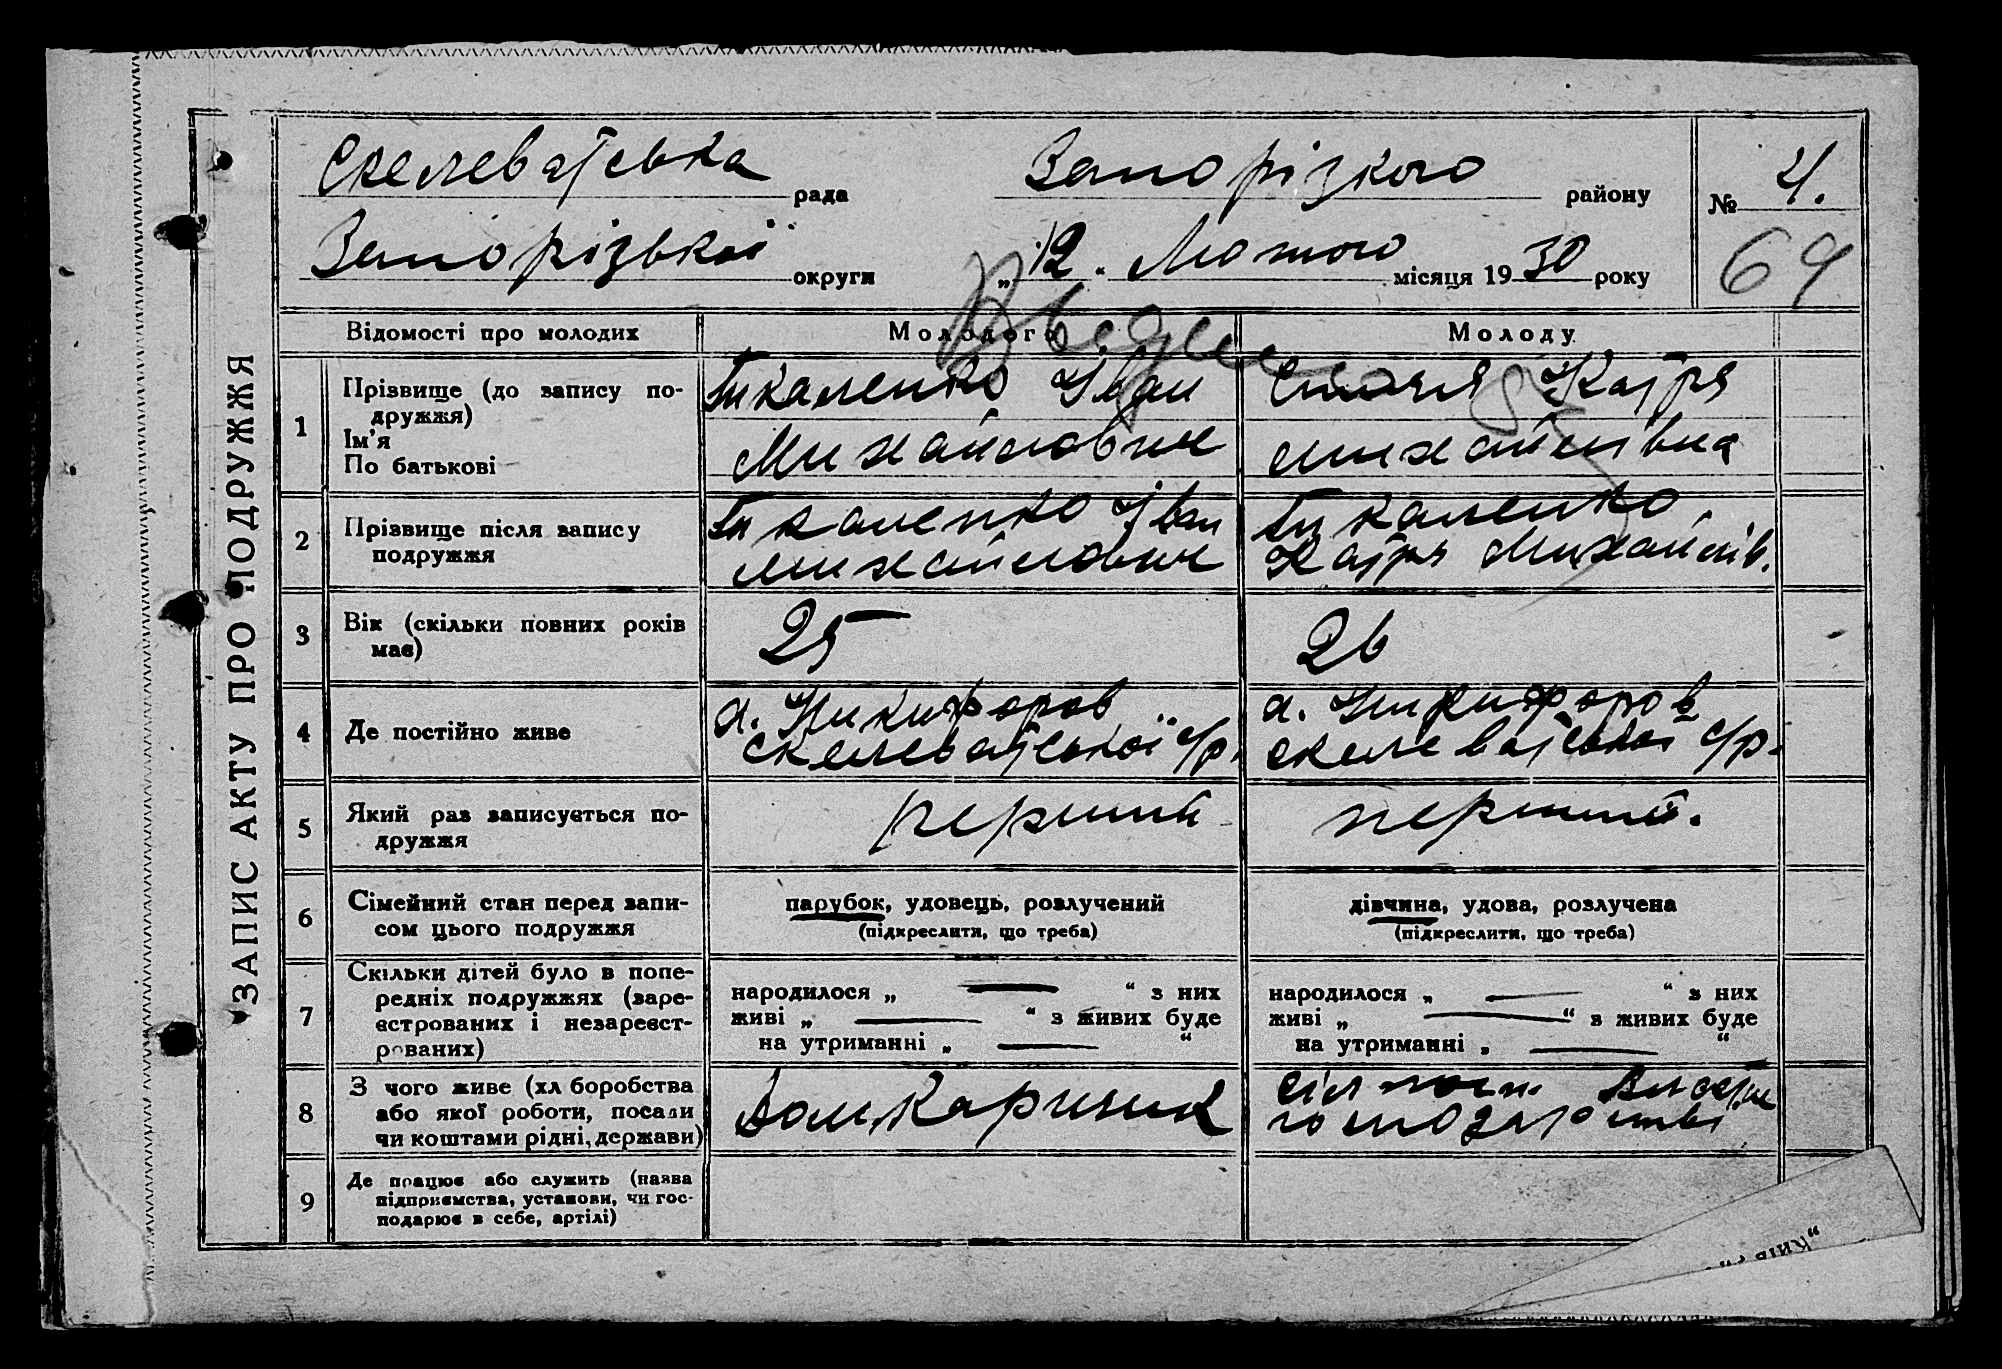 ЗАПИС АКТУ ПРО ПОДРУЖЖЯ
Скелеватська рада Запорізкого району № 4.
Запорізької округи „12“ Лютого місяця 1930 року
69
Відомості про молодих Молодого Молоду
1 Прізвище (до запису по-
дружжя)
Ім'я
По батькові
Ткаленко Іван
Михайлович
Катря
михайлівна
2 Прізвище після запису
подружжя
Ткаленко Іван
михайлович
Ткаленко
Катря Михайлів.
3 Вік (скільки повних років
має)
25
26
4 Де постійно живе
х. Никифоров
скелеватської с/р.
х. Никифоров
скелеватської с/р.
5 Який раз записується по-
дружжя
перший
перший.
6 Сімейний стан перед запи-
сом цього подружжя
парубок, удовець, розлучений
(підкреслити, що треба)
дівчина, удова, розлучена
(підкреслити, що треба)
7 Скільки дітей було в попе-
редніх подружжях (заре-
єстрованих і незареєст-
рованих)
народилося „ — “ з них
живі „ — “ з живих буде
на утриманні „ — “
народилося „ — “ з них
живі „ — “ з живих буде
на утриманні „ — “
8 З чого живе (хл боробства
або якої роботи, посади
чи коштами рідні, держави)
господарстві
9 Де працює або служить (назва
підприємства, установи, чи гос-
подарює в себе, артілі)